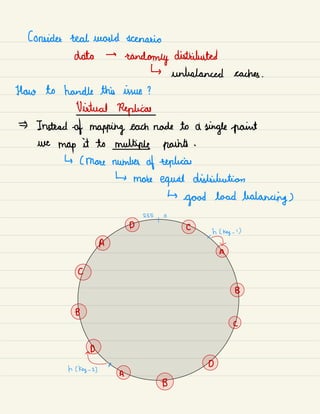 Consider real would scenario
data → randomly distributed
↳ unbalanced caches.
How to handle this issue?
Virtual Replicas
⇒ Instead of mapping each node to a single point
we map it to multiple points.
↳ (more number of replicas
↳ more equal distribution
↳ good load balancing)
255 0
D C
h(key_1)
A A
C B
B C
D D
h(key_2)
A B